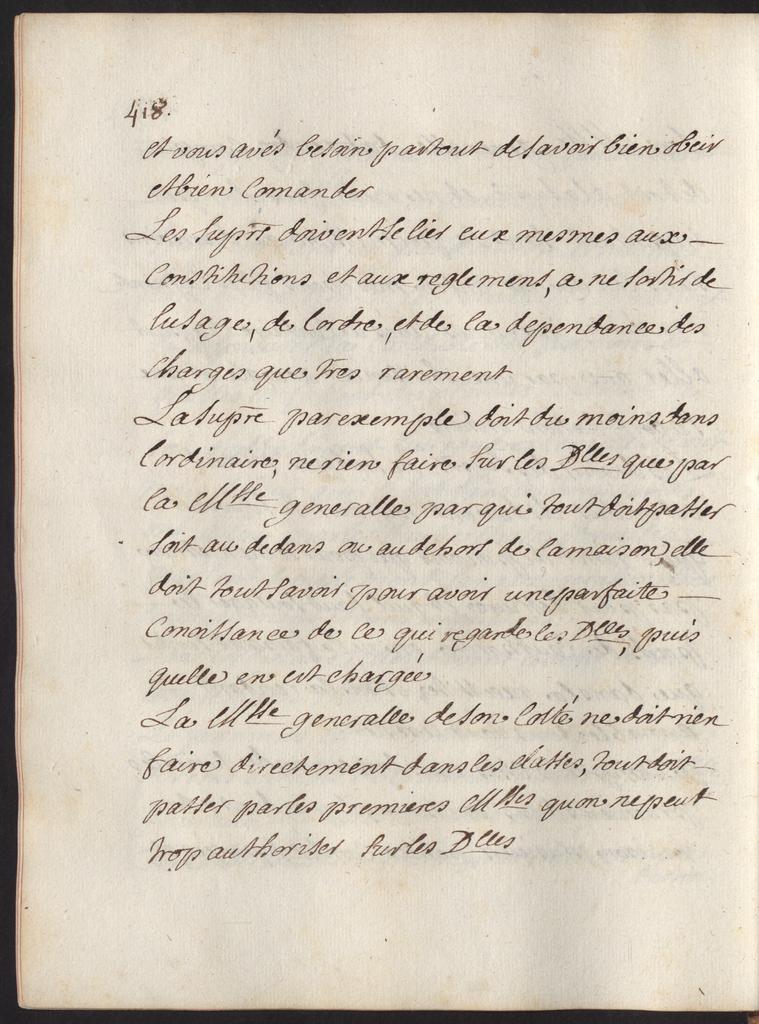 418.
et vous avés besoin partout de savoir bien obeir
et bien Comander
Les supres doivent se lier eux mesmes aux
Constitutions et aux reglemens, a ne sortir de
lusage, de lordre, et de la dependance des
Charges que tres rarement
La supre par exemple doit du moins dans
lordinaire, ne rien faire sur les Dlles que par
la Mtsse generalle par qui tout doit passer
soit au dedans ou au dehors de la maison, elle
doit tout savoir pour avoir une parfaite
Conoissance de ce qui regarde les Dlles, puis
quelle en est chargée
La Mtsse generalle de son Costé ne doit rien
faire directement dans les classes, tout doit
passer par les premieres Mtsses quon ne peut
trop authoriser sur les Dlles